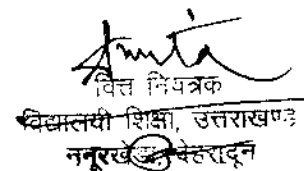 वित्त नियंत्रक
विद्यालयी शिक्षा, उत्तराखण्ड
ननूरखेड़ा देहरादून